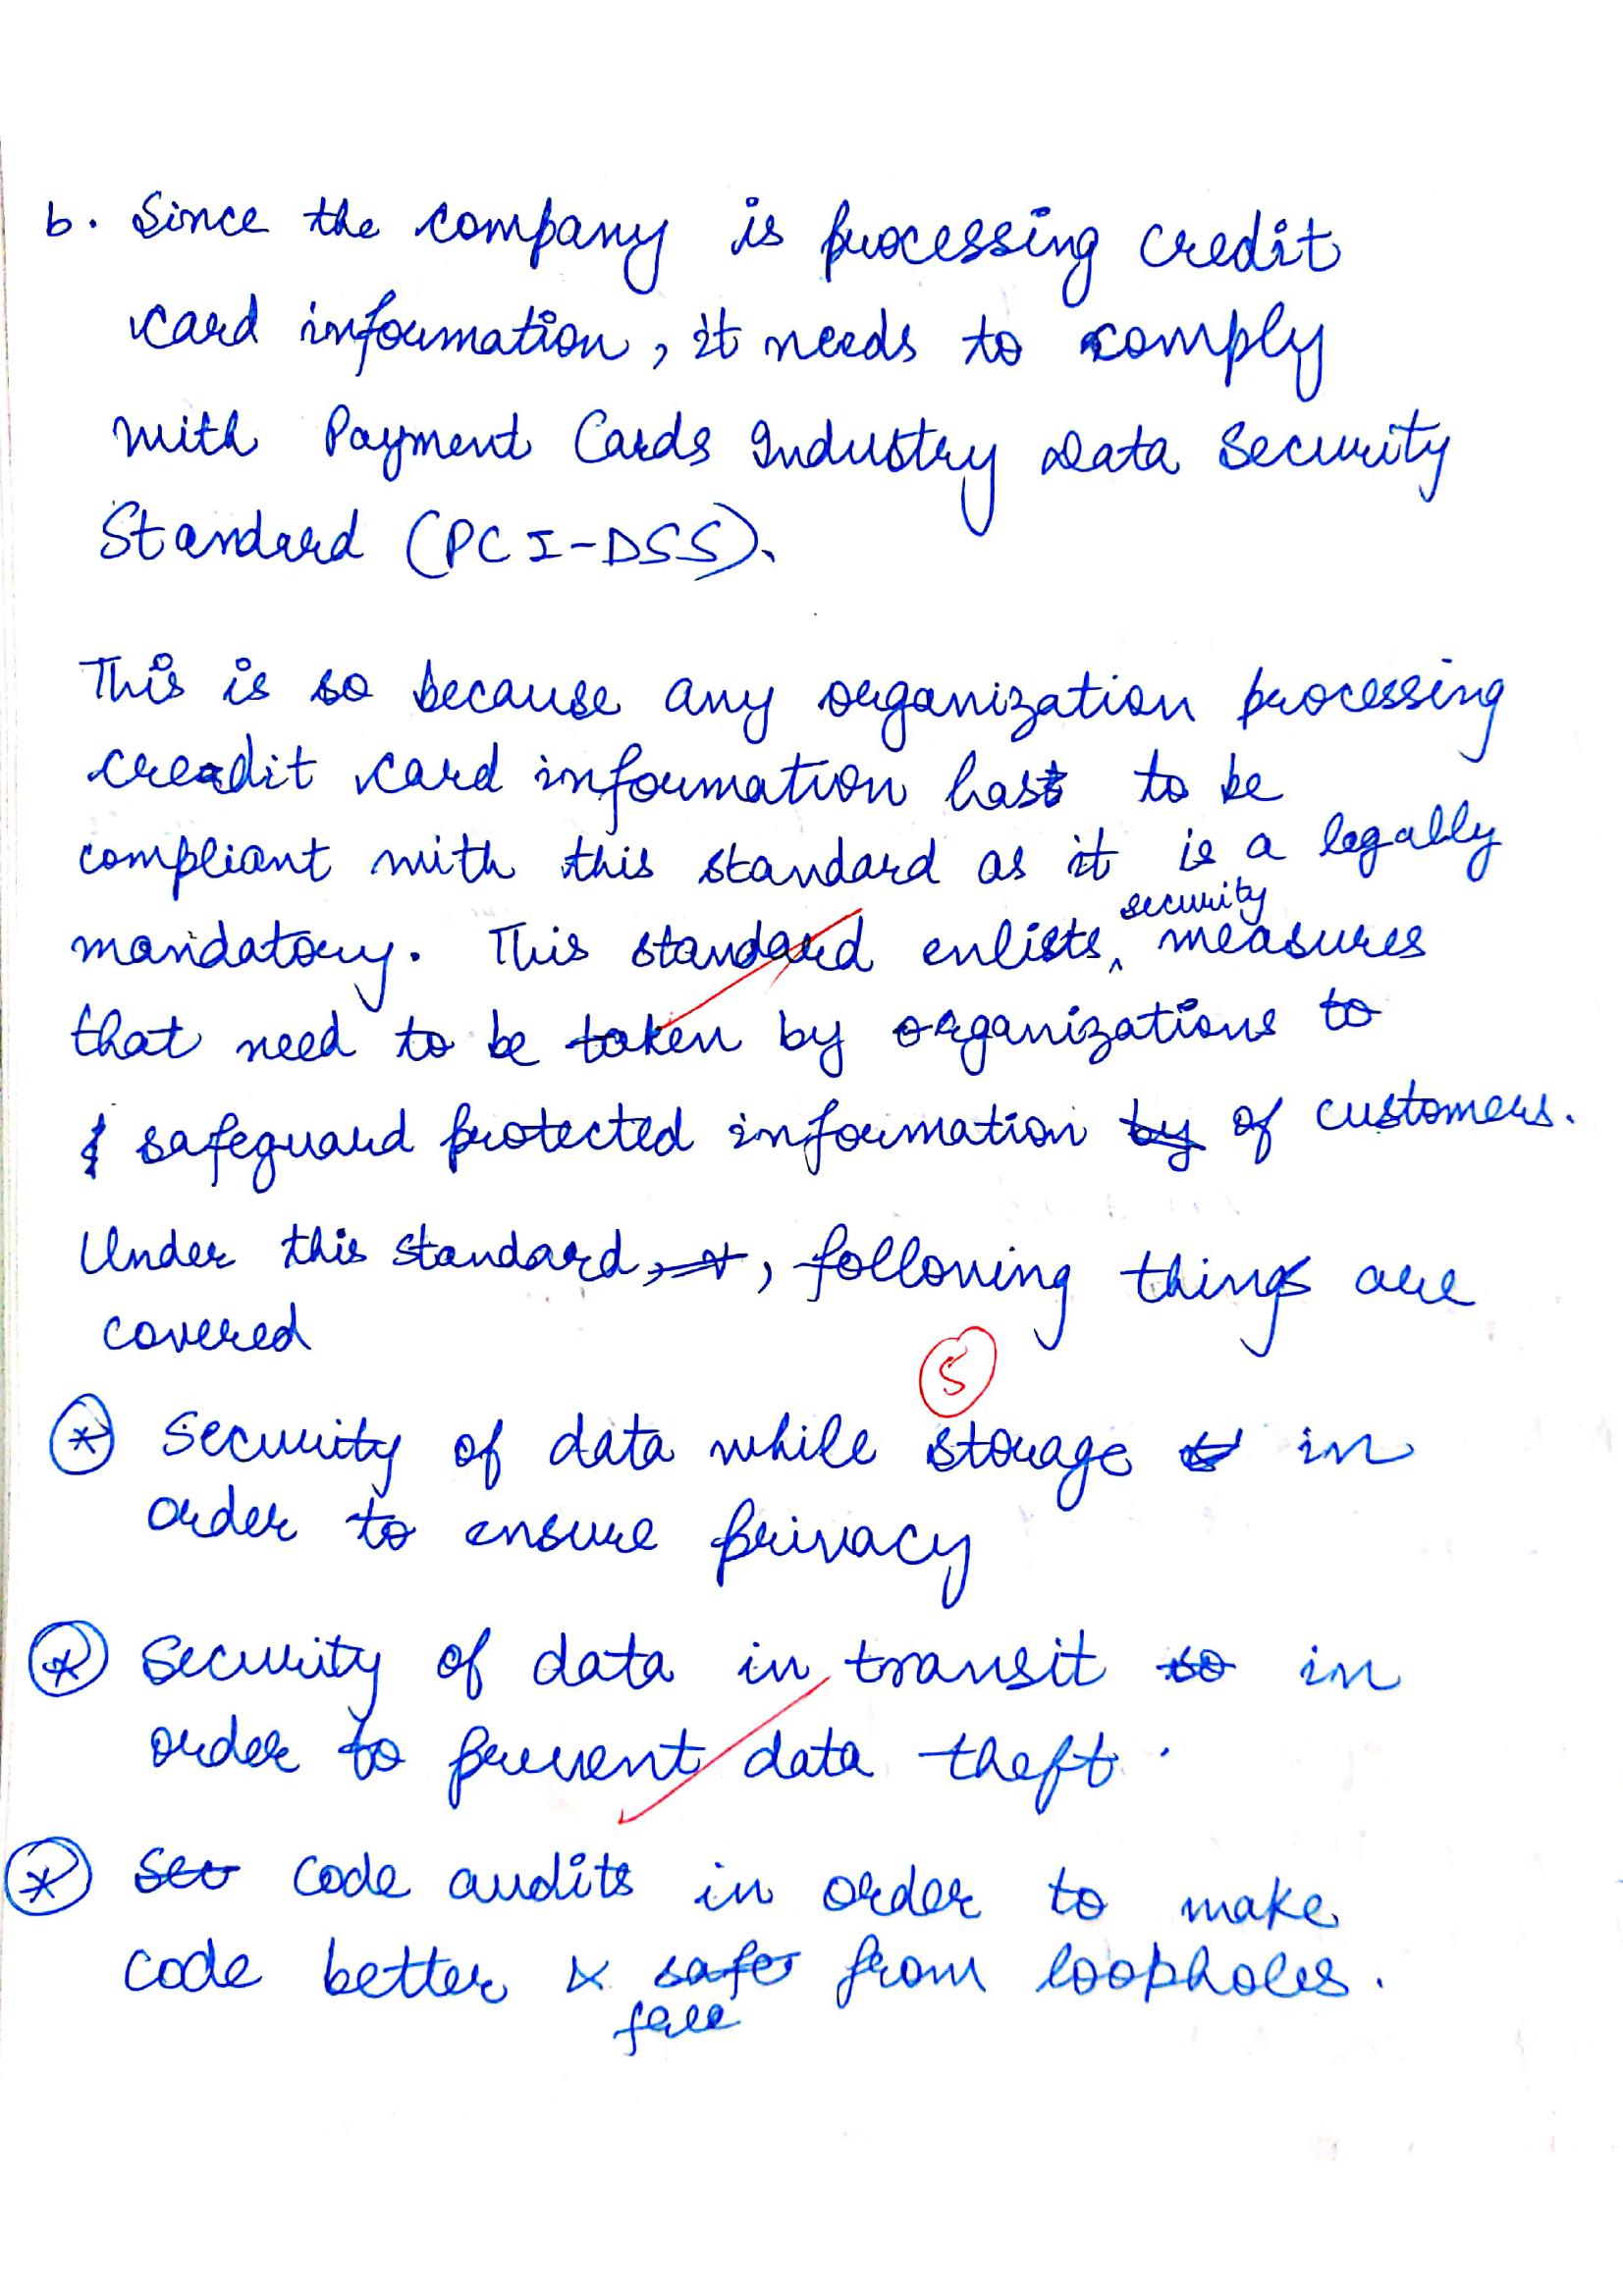 b. Since the company is processing credit
card information, it needs to comply
with Payment Cards Industry Data Security
Standard (PCI-DSS).
This is so because any organization processing
creadit card information has to be
compliant with this standard as it is a legally
security
mandatory. This standard enlists ^ measures
that need to be taken by organizations to
safeguard protected information by of customers.
Under this standard, , following things are
covered
5
* Security of data while storage in
order to ensure privacy
* Security of data in transit so in
order to prevent data theft.
* Sec Code audits in order to make
code better & safer from loopholes.
free